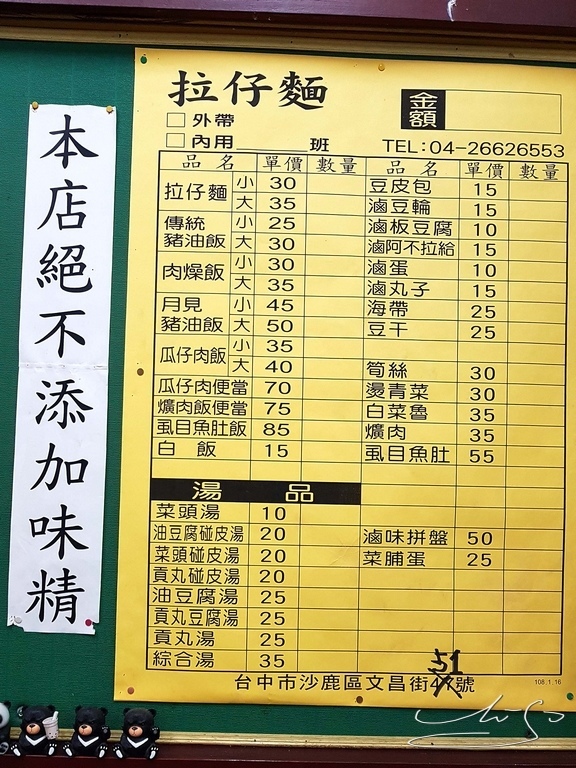 本店絕不添加味精
拉仔麵
金額
□外帶
□內用______班 TEL:04-26626553
品名 單價 數量 品名 單價 數量
拉仔麵 小 30 豆皮包 15
大 35 滷豆輪 15
傳統豬油飯 小 25 滷板豆腐 10
大 30 滷阿不拉給 15
肉燥飯 小 30 滷蛋 10
大 35 滷丸子 15
月見豬油飯 小 45 海帶 25
大 50 豆干 25
瓜仔肉飯 小 35
大 40 筍絲 30
瓜仔肉便當 70 燙青菜 30
爌肉飯便當 75 白菜魯 35
虱目魚肚飯 85 爌肉 35
白飯 15 虱目魚肚 55
湯品
菜頭湯 10
油豆腐碰皮湯 20 滷味拼盤 50
菜頭碰皮湯 20 菜脯蛋 25
貢丸碰皮湯 20
油豆腐湯 25
貢丸豆腐湯 25
貢丸湯 25
綜合湯 35
51
台中市沙鹿區文昌街47號
108.1.16